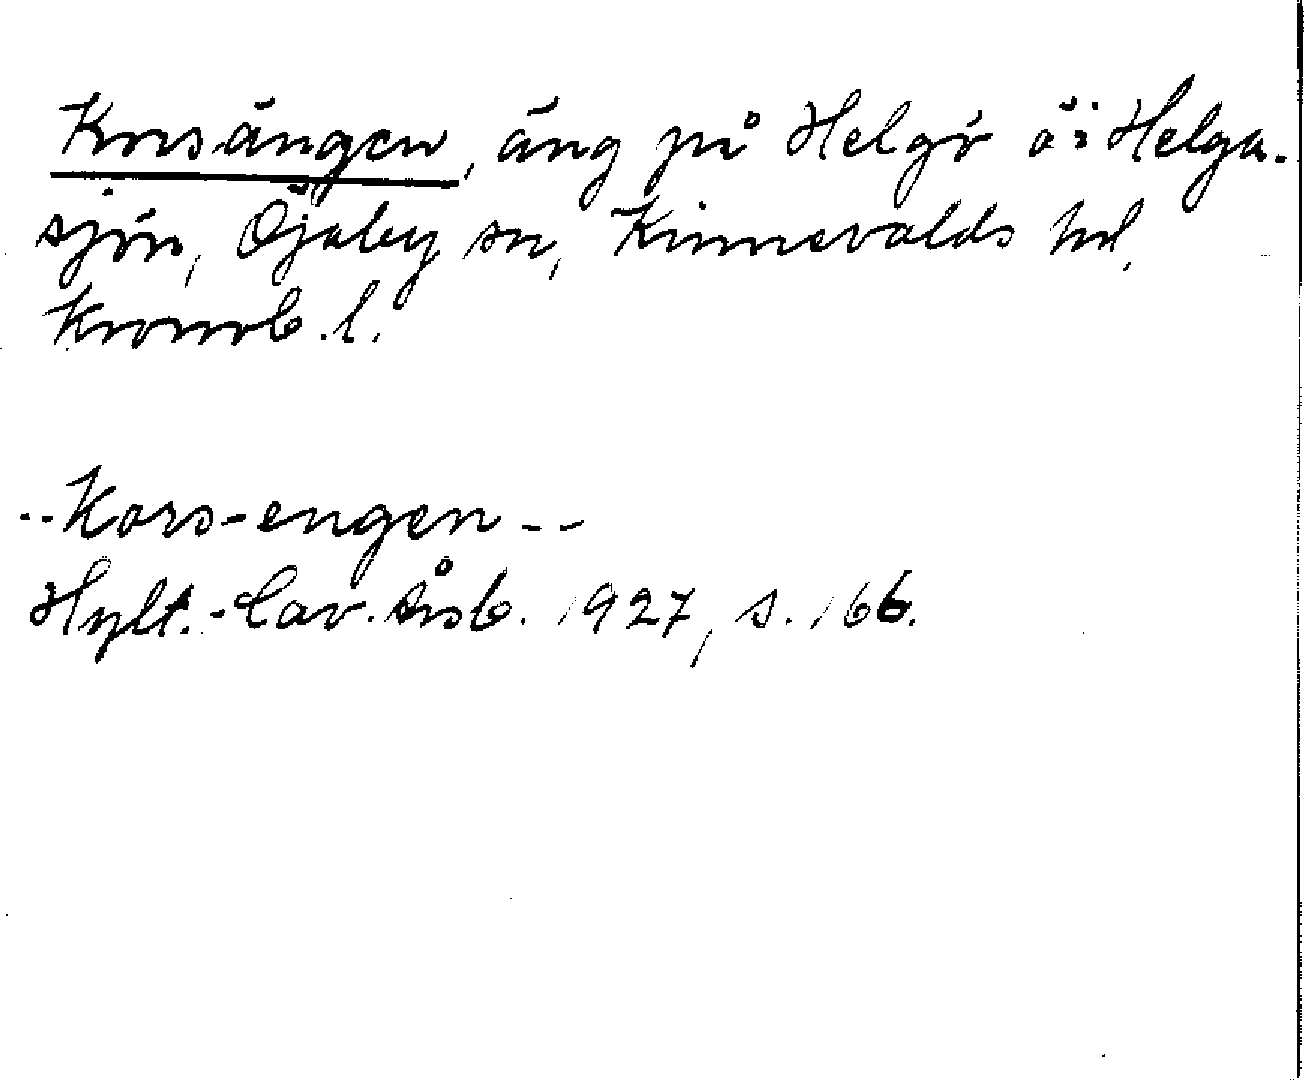 Korsängen, äng på Helgö ö i Helga-
sjön, Öjaby sn, Kinnevalds hd,
Kronob. l.
--Kors-engen--
Hylt.-Cav. årsb. 1927, s. 166.